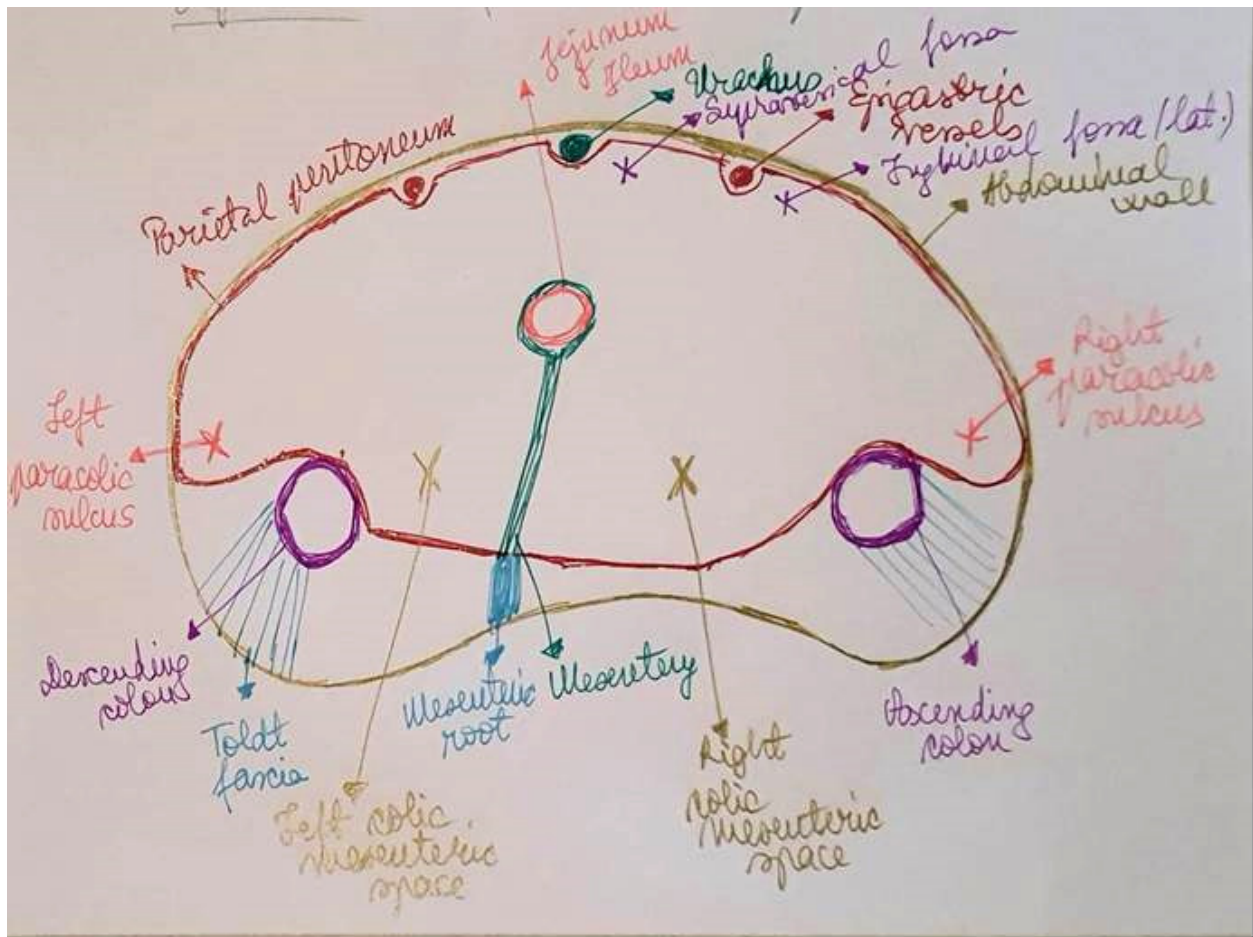 Jejunum
y Ileum
Urachus
Supravesical fossa
Epigastric
vessels
Inguinal fossa (lat.)
Abdominal
wall
Parietal peritoneum
Right
paracolic
sulcus
Left
paracolic
sulcus
Descending
colon
Toldt
fascia
Mesenteric
root
Mesentery
Right
colic
mesenteric
space
Ascending
colon
Left colic
mesenteric
space